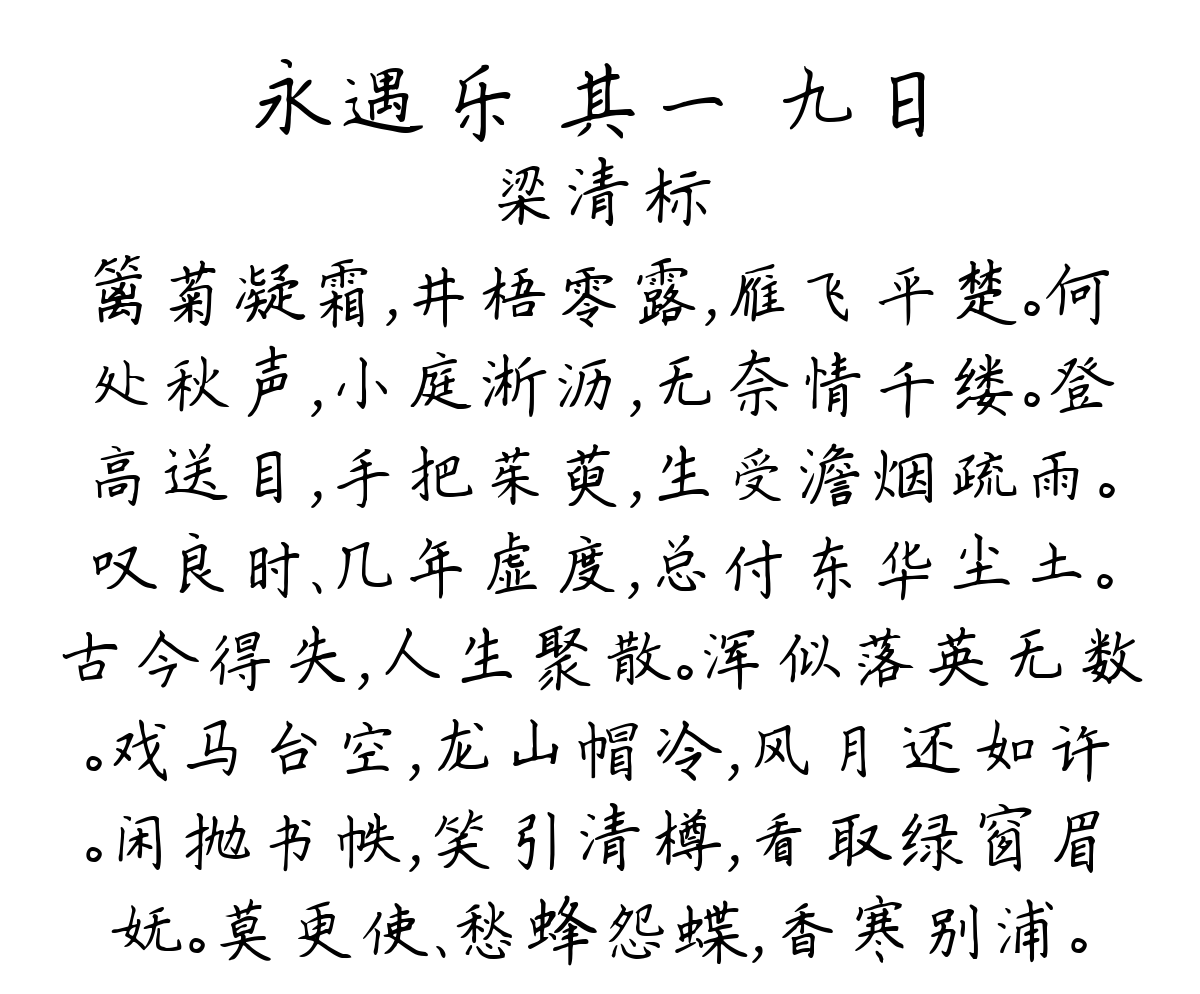 永遇乐 其一 九日
梁清标
篱菊凝霜,井梧零露,雁飞平楚。何
处秋声,小庭淅沥,无奈情千缕。登
高送目,手把茱萸,生受澹烟疏雨。
叹良时、几年虚度,总付东华尘土。
古今得失,人生聚散。浑似落英无数
。戏马台空,龙山帽冷,风月还如许
。闲抛书帙,笑引清樽,看取绿窗眉
妩。莫更使、愁蜂怨蝶,香寒别浦。